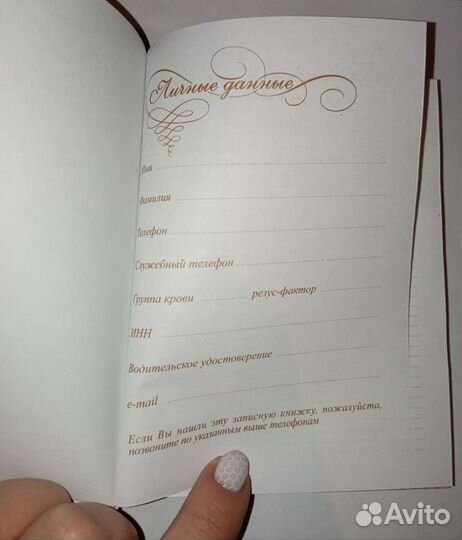 Личные данные
Имя
Фамилия
Телефон
Служебный телефон
Группа крови резус-фактор
ИНН
Водительское удостоверение
e-mail
Если Вы нашли эту записную книжку, пожалуйста,
позвоните по указанным выше телефонам
Avito